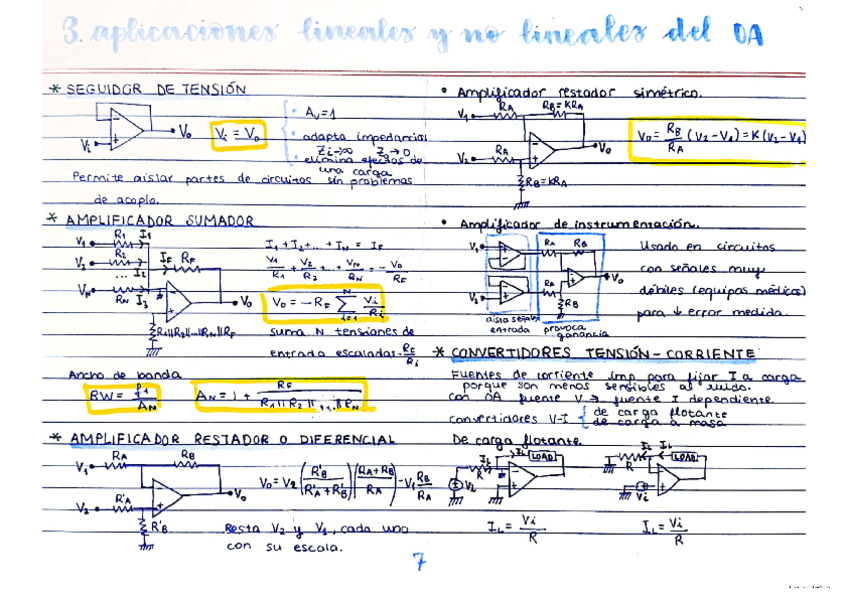 3. aplicaciones lineales y no lineales del OA
* SEGUIDOR DE TENSIÓN
Vi
Vo
Vi = Vo
· Av=1
· adapta impedancias
Zi→∞ Zo→0
· elimina efectos de
una carga
Permite aislar partes de circuitos sin problemas
de acoplo.
* AMPLIFICADOR SUMADOR
V1 R1 I1
V2 R2 IF RF
... I2
VN RN I3
Vo
R1||R2||...||RN||RF
I1 + I2 + ... + IN = IF
V1/R1 + V2/R2 + ... + VN/RN = - Vo/RF
Vo = -RF ∑ i=1 N Vi/Ri
suma N tensiones de
entrada escaladas RF/Ri
Ancho de banda
BW = f1/AN
AN = 1 + RF/R1||R2||...||RN
* AMPLIFICADOR RESTADOR O DIFERENCIAL
V1 RA RB
V2 R'A
Vo
R'B
Vo = V2 (R'B/R'A+R'B)(RA+RB/RA) - V1 RB/RA
Resta V2 y V1, cada uno
con su escala.
• Amplificador restador simétrico.
V1 RA RB=KRA
V2 RA
Vo
RB=KRA
Vo = RB/RA (V2-V1) = K(V2-V1)
• Amplificador de instrumentación.
V1 RA RB
V2 RA
RB
Vo
aisla señales entrada
provoca ganancia
Usado en circuitos
con señales muy
débiles (equipos médicos)
para ↓ error medida.
* CONVERTIDORES TENSIÓN-CORRIENTE
Fuentes de corriente imp para fijar I a carga
porque son menos sensibles al ruido.
Con OA fuente V → fuente I dependiente.
Convertidores V-I { de carga flotante
de carga a masa
De carga flotante.
IL IL LOAD
R
Vi
IL = Vi/R
IL IL LOAD
R
Vi
IL = Vi/R
7